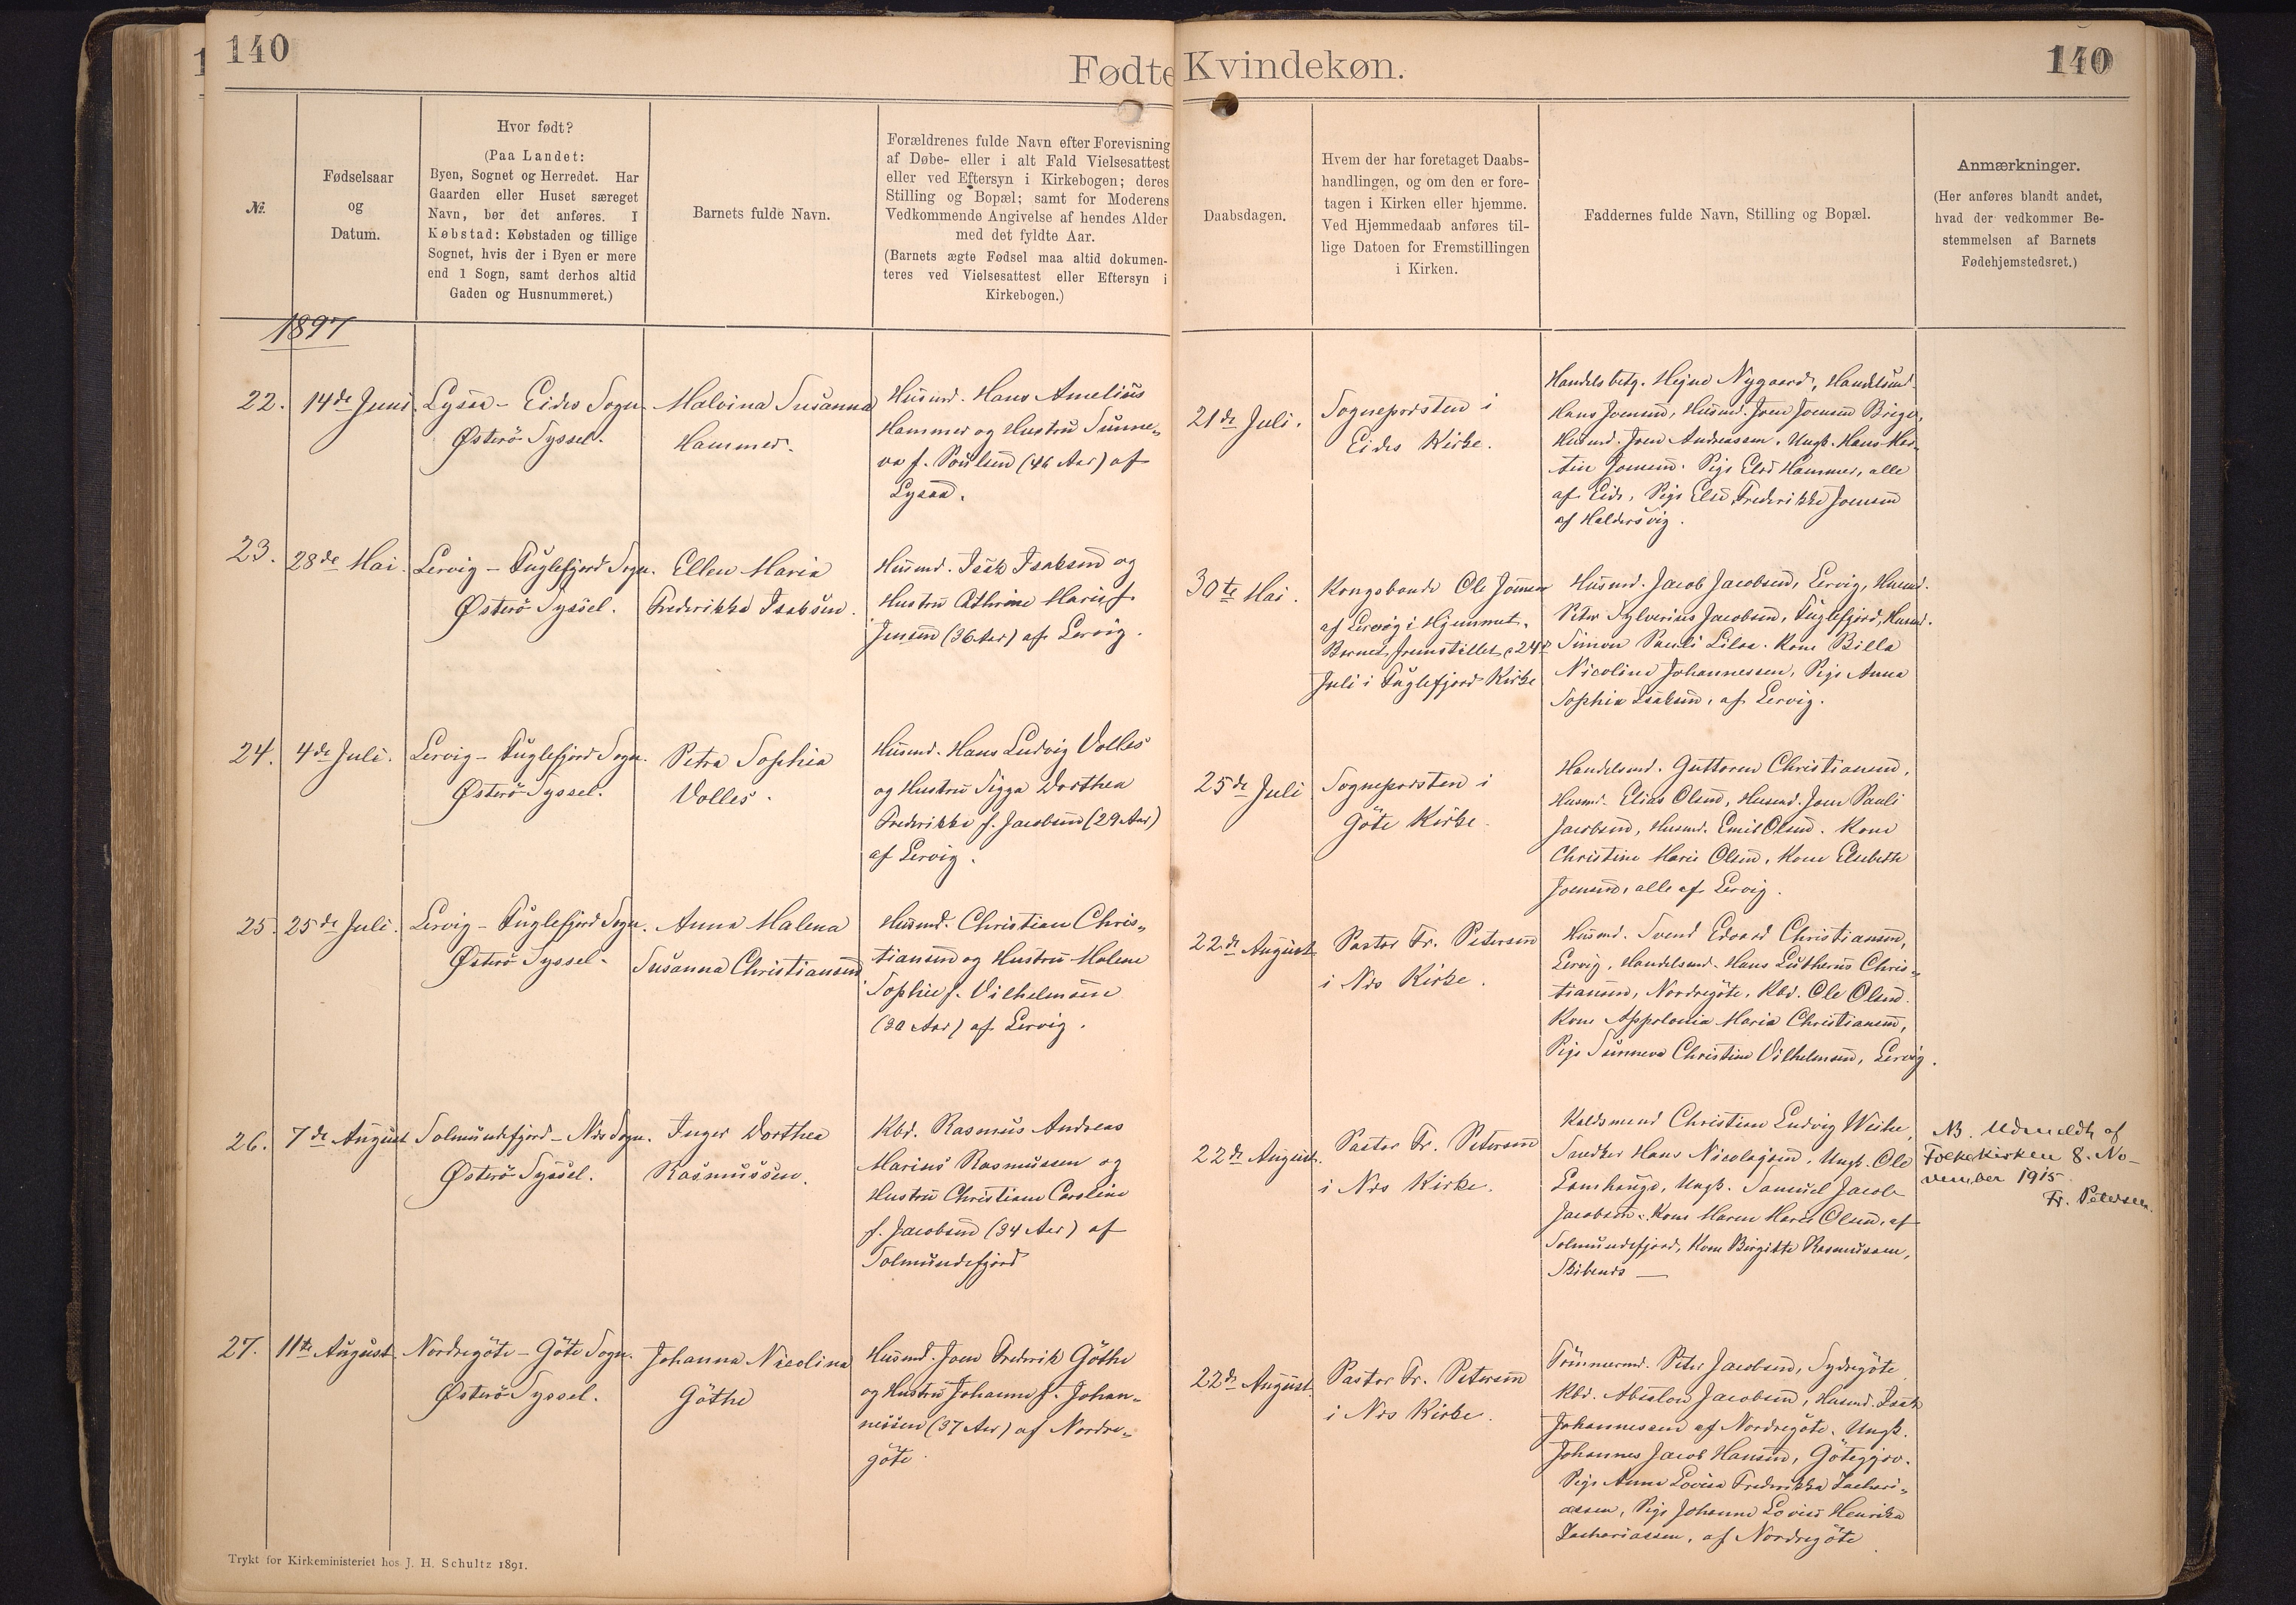 140
Fødte Kvindekøn.
140
№.
Fødselsaar
og
Datum.
Hvor født?
(Paa Landet:
Byen, Sognet og Herredet. Har
Gaarden eller Huset særeget
Navn, bør det anføres. I
Købstad: Købstaden og tillige
Sognet, hvis der i Byen er mere
end 1 Sogn, samt derhos altid
Gaden og Husnummeret.)
Barnets fulde Navn.
Forældrenes fulde Navn efter Forevisning
af Døbe- eller i alt Fald Vielsesattest
eller ved Eftersyn i Kirkebogen; deres
Stilling og Bopæl; samt for Moderens
Vedkommende Angivelse af hendes Alder
med det fyldte Aar.
(Barnets ægte Fødsel maa altid dokumen-
teres ved Vielsesattest eller Eftersyn i
Kirkebogen.)
Daabsdagen.
Hvem der har foretaget Daabs-
handlingen, og om den er fore-
tagen i Kirken eller hjemme.
Ved Hjemmedaab anføres til-
lige Datoen for Fremstillingen
i Kirken.
Faddernes fulde Navn, Stilling og Bopæl.
Anmærkninger.
(Her anføres blandt andet,
hvad der vedkommer Be-
stemmelsen af Barnets
Fødehjemstedsret.)
1897
22.
14de Juni
Lysaa - Eides Sogn
Østerö Syssel.
Malvina Susanna
Hammer.
Husmd. Hans Amelius
Hammer og Hustru Sunne-
va f. Poulsen (46 Aar) af
Lysaa.
21de Juli.
Sognepræsten i
Eides Kirke.
Handelsbest. Hejne Nygaard, Handelsmd.
Hans Joensen, Husmd. Joen Joensen
Husmd. Joen Andreassen, Ungk. Hans Mar-
tin Joensen. Pige Else Hammer, alle
af Eide, Pige Else Frederikke Joensen
af Haldersvig.
23.
28de Mai.
Lervig - Fuglefjord Sogn.
Østerö Syssel.
Ellen Maria
Frederikka Isaksen.
Husmd. Isak Isaksen og
Hustru Cathrine Marie f.
Jensen (36 Aar) af Lervig.
30te Mai.
Kongsbonde Ole
af Lervig i Hjemmet.
Barnet fremstillet 24de
Juli i Fuglefjord Kirke
Husmd. Jacob Jacobsen, Lervig, Husmd.
Peter Sylverius Jacobsen, Fuglefjord, Husmd.
Simon Pauli Lilaa. Kone Billa
Nicoline Johannessen, Pige Anna
Sophia Isaksen, af Lervig.
24.
4de Juli.
Lervig - Fuglefjord Sogn.
Østerö Syssel.
Petra Sophia
Volles.
Husmd. Hans Ludvig Volles
og Hustru Sigga Dorthea
Frederikke f. Jacobsen (29 Aar)
af Lervig.
25de Juli
Sognepræsten i
Göte Kirke.
Handelsmd. Guttorm Christiansen,
Husmd. Elias Olsen, Husmd. Joen Pauli
Jacobsen, Husmd. Emil Olsen. Kone
Christine Marie Olsen, Kone Elsebeth
Joensen, alle af Lervig.
25.
25de Juli.
Lervig - Fuglefjord Sogn.
Østerö Syssel.
Anna Malena
Susanna Christiansen
Husmd. Christian Chris-
tiansen og Hustru Malene
Sophie f. Vilhelmsen
(30 Aar) af Lervig.
22de August
Pastor Fr. Petersen
i Næs Kirke.
Husmd. Svend Edvard Christiansen,
Lervig, Handelsmd. Hans Lutherus Chris-
tiansen, Nordregöte, Kbd. Ole Olsen.
Kone Appolonia Maria Christiansen,
Pige Sunneva Christine Vilhelmsen, Lervig.
26.
7de August
Solmundefjord - Næs Sogn.
Østerö Syssel.
Inger Dorthea
Rasmussen.
Kbd. Rasmus Andreas
Marius Rasmussen og
Hustru Christiane Caroline
f. Jacobsen (34 Aar) af
Solmundefjord
22de August.
Pastor Fr. Petersen
i Næs Kirke.
Christian Ludvig Weihe,
Snedker Hans Nicolajsen, Ungk. Ole
Lamhauge, Ungk. Samuel Jacob
Jacobsen. Kone Maren Marie Olsen, af
Solmundefjord, Kone Birgitte Rasmussen,
Skibenæs —
NB. Udmeldt af
Folkekirken 8. No-
vember 1915
Fr. Petersen.
27.
11te August.
Nordregöte - Göte Sogn.
Østerö Syssel.
Johanna Nicolina
Göthe
Husmd. Joen Frederik Göthe
og Hustru Johanne f. Johan-
nessen (37 Aar) af Nordre-
göte.
22de August
Pastor Fr. Petersen
i Næs Kirke.
Tömmermd. Peter Jacobsen, Sydregöte
Kbd. Absalon Jacobsen, Husmd. Isak
Johannessen af Nordregöte. Ungk.
Johannes Jacob Hansen, Götegjov.
Pige Anna Lovisa Frederikka Zachari-
assen, Pige Johanne Lovise Henrika
Zachariassen, af Nordregöte.
Trykt for Kirkeministeriet hos J. H. Schultz 1891.